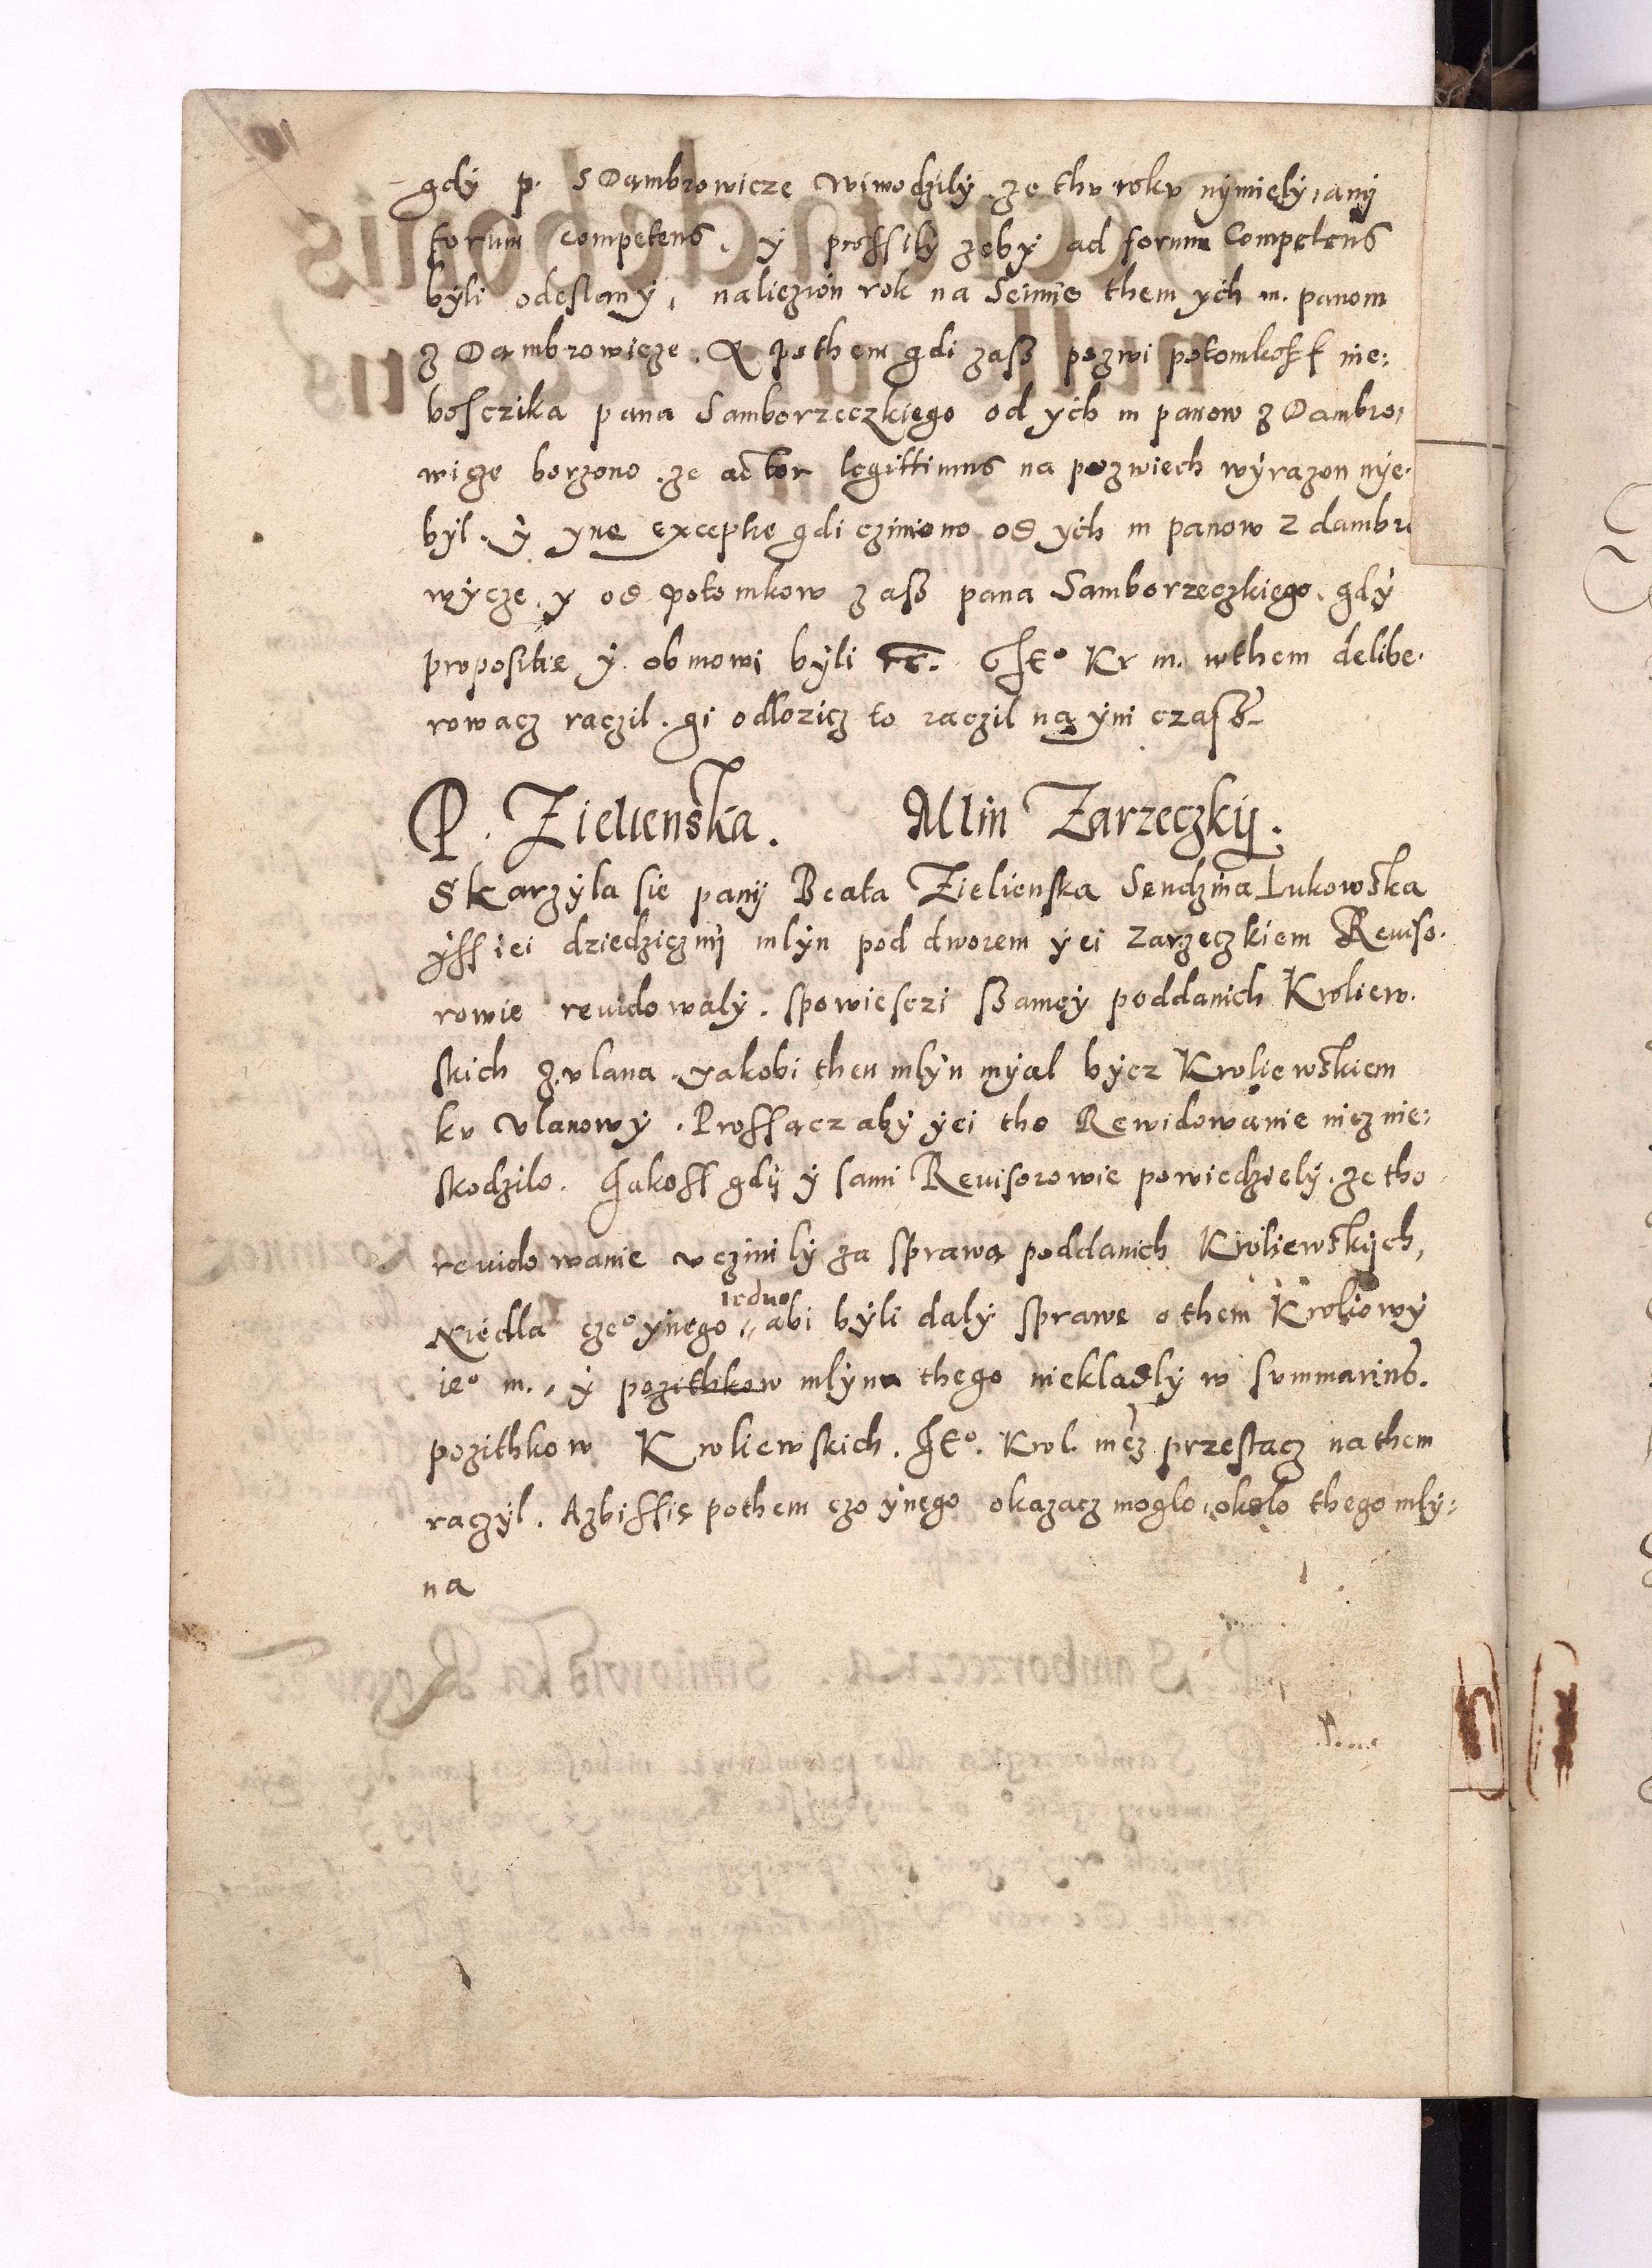 gdy p. s Dambrowicze wiwodzily ze thu roku nymiely, any
forum competens. y prossily zeby ad forum Competens
byli odeslany, naliezion rok na Seimie them ych m. panom
z Dambrowicze. A pothem gdi zasz pozwi potomkoff nie:
bosczika pana Samborzeczkiego od ych m panow z Dambro,
wicze borzono. ze actor legittimus na pozwiech wyrazon nye.
byl. y yne exceptie gdi cziniono od ych m panow z dambro
wycze. y od potomkow zasz pana Samborzeczkiego. gdy
propositie y obmowi byli rc. Jego Kr m. wthem delibe.
rowacz raczil. gi odlozicz to raczil na yni czasz
P. Zielienska. Mlin Zarzeczkij.
Skarzyla sie panij Beata Zielienska Sendzina Lukowska
yssiei dziedzicznij mlyn pod dworem yei Zarzeczkiem Reuiso.
rowie reuidowaly. spowiesczi szamey poddanich Kroliew.
skich z vlana. yakobi then mlyn myal bycz Kroliewskiem
ku Vlanowy. Prossacz aby yei tho Rewidowanie nicz nie:
skodzilo. Jakoss gdij y sami Reuisorowie powiedziely. ze tho
reuidowanie vczinily za sprawa poddanich Kroliewskijch,
Niedla czeo ynego jedno abi byli daly sprawe othem Kroliowy
ieo m., y pozithkow mlyna thego niekladly w summarius.
pozithkow Kroliewskich. Jeo. Krol. mcz przestacz nathem
raczyl. Azbissie pothem czo ynego okazacz moglo, okolo thego mly:
na